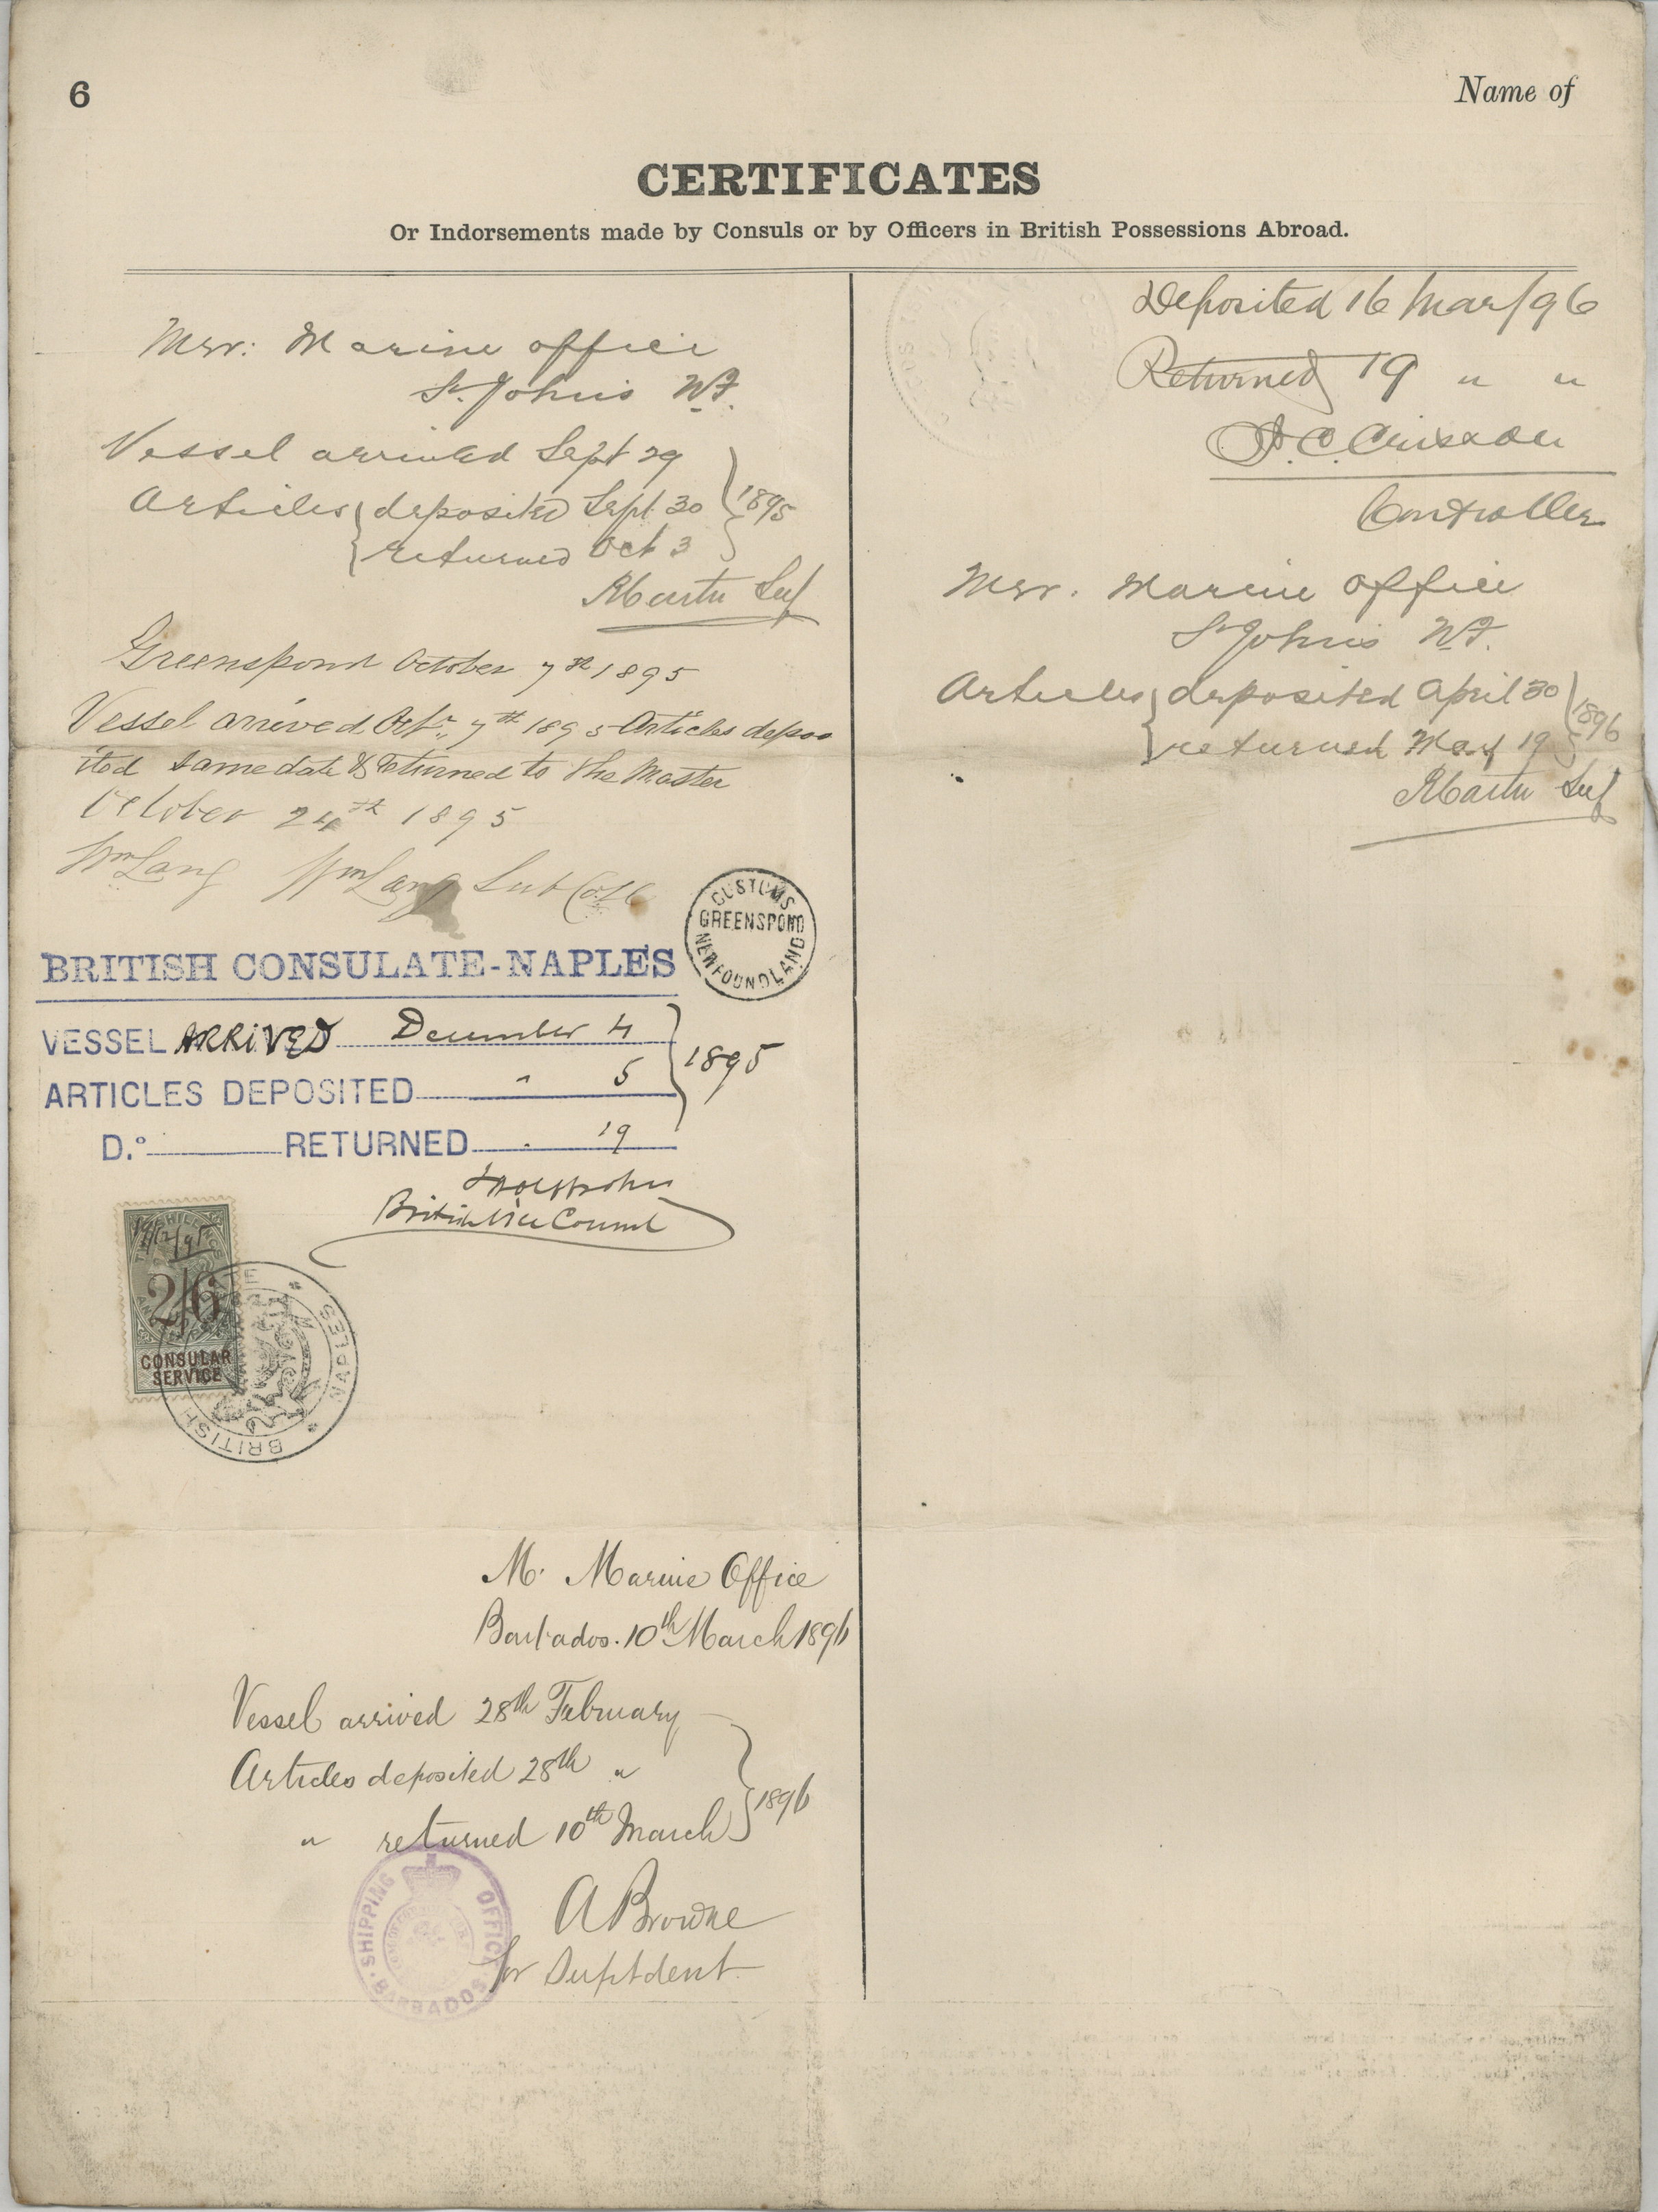 6
Name of
CERTIFICATES
Or Indorsements made by Consuls or by Officers in British Possessions Abroad.
Mer: Marine office
St. John's NF.
Vessel arrived Sept 29
Articles deposited Sept 30
returned Oct 3
1895
Greenspond October 7th 1895
Vessel arrived Octr. 7th 1895 Articles depos
ited same date & returned to the Master
October 24th 1895
Wm Lang Wm Lang Sub Coll
CUSTOMS
GREENSPOND
NEWFOUNDLAND
BRITISH CONSULATE-NAPLES
VESSEL ARRIVED December 4
ARTICLES DEPOSITED " 5
D.o RETURNED " 19
1895
British Vice Consul
2/6
CONSULAR
SERVICE
BRITISH CONSULATE NAPLES
M. Marine Office
Barbados. 10th March 1896
Vessel arrived 28th February
Articles deposited 28th "
" returned 10th March
1896
A Browne
for Suptdent
SHIPPING OFFICE
BARBADOS
Deposited 16 Mar/96
Returned 19 " "
Controller
Mer. Marine office
St John's NF.
Articles deposited April 30
returned May 19
1896